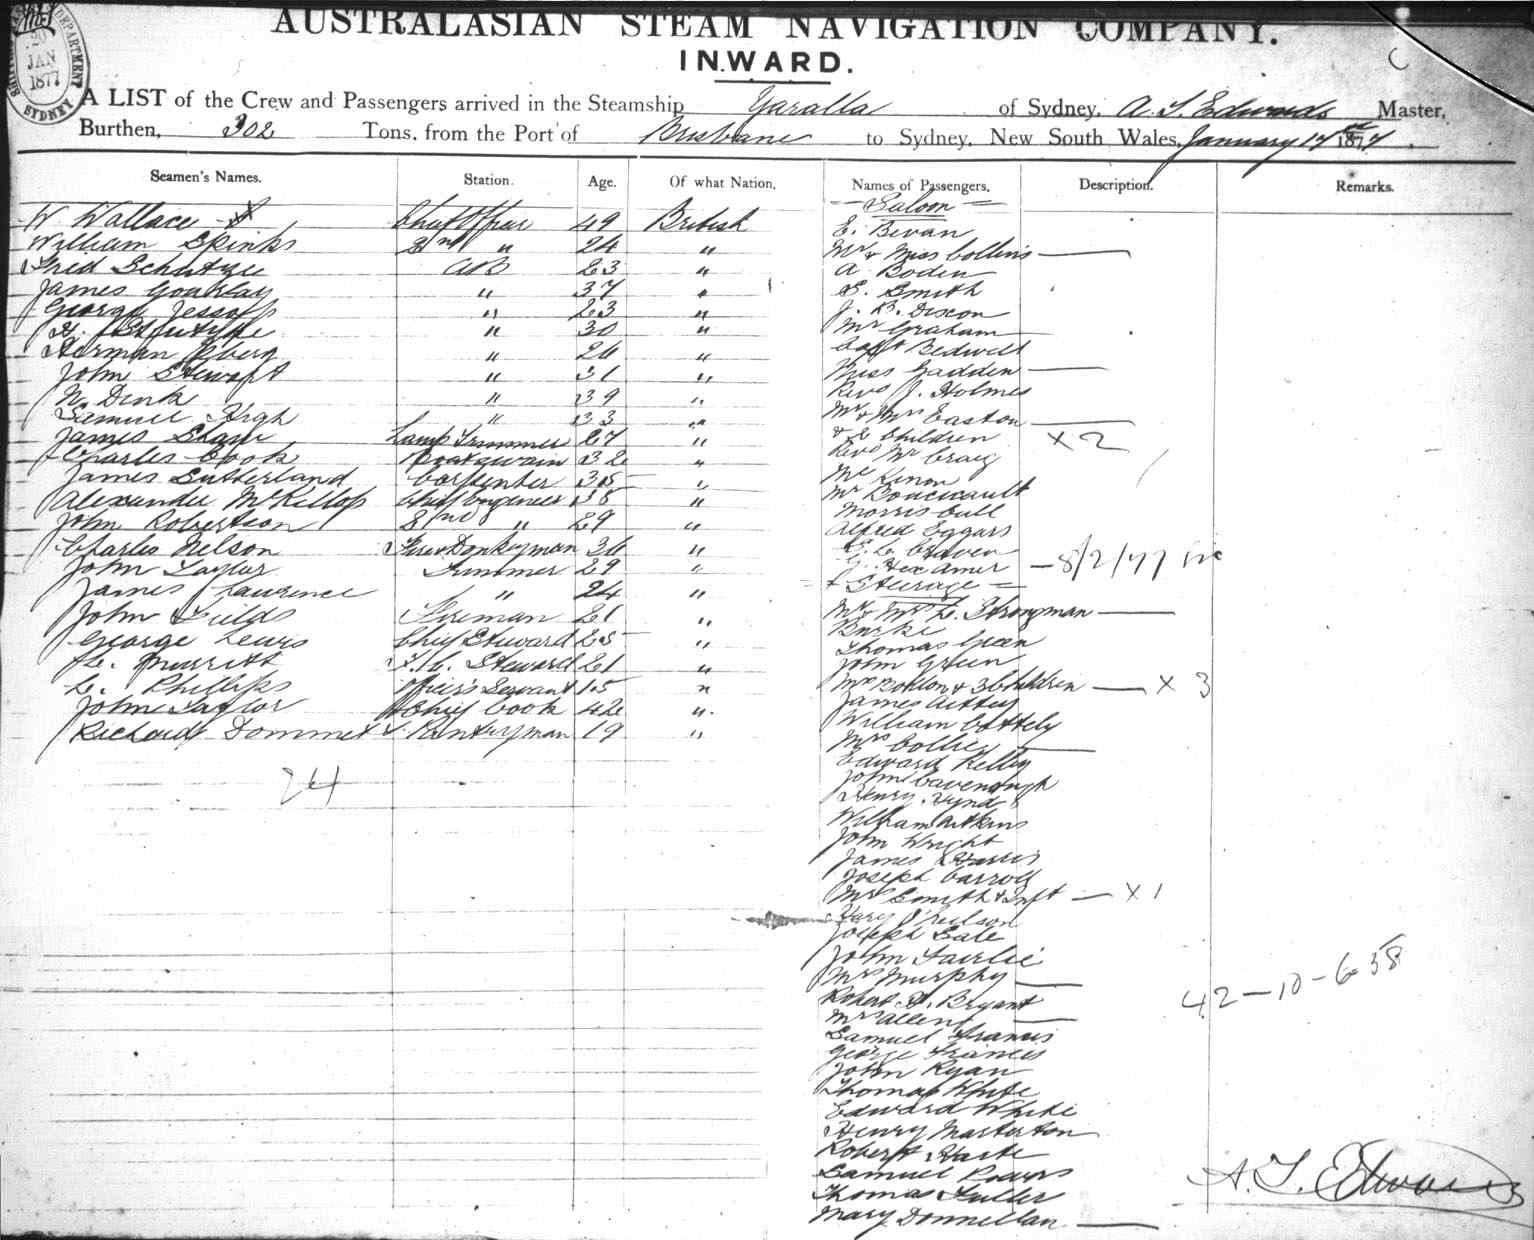 SHIPPING DEPARTMENT
20
JAN
1877
SYDNEY
AUSTRALASIAN STEAM NAVIGATION COMPANY.
INWARD.
C
A LIST of the Crew and Passengers arrived in the Steamship Yaralla of Sydney, A. T. Edwards Master,
Burthen, 302 Tons, from the Port of Brisbane to Sydney, New South Wales, January 17th 1877
Seamen's Names. Station. Age. Of what Nation. Names of Passengers. Description. Remarks.
Saloon
W Wallace Chief Officer 49 British E. Bevan
William Spinks 2nd " 24 " Mr & Miss Collins
Schutze AB 23 " A Boden
James " 37 " S. Smith
George Jessop " 23 " J. B. Dixon
" 30 " Mr Graham
Herman " 26 " Capt Bedwell
John Stewart " 31 " Miss Gadden
N. Dink " 39 " Revd J. Holmes
Samuel High " 33 " Mr & Mrs Easton
James Shaw Lamp Trimmer 27 " & 2 Children x 2
Charles Cook Boatswain 32 " Revd Mr Craig
James Sutherland Carpenter 35 " Mr Kinon
Alexander McKillop Chief Engineer 38 " Mr Boucicault
John Robertson 2nd " 29 " Morris Cull
Alfred Eggars
Charles Nelson Fire & Donkeyman 36 " E. C. Craven
John Taylor Trimmer 29 " G. Hex Amer 8/2/77
James Lawrence " 24 " Steerage
John Fields Fireman 21 " Mr & Mrs L. Strongman
George Lewis Chief Steward 25 " Burke
Thomas Green
C. Murritt F. C. Steward 21 " John Green
C. Phillips Officer's Servant 15 " Mrs & 3 Children x 3
John Taylor Chief Cook 42 " James
Richard Dommett Pantryman 19 " William Cottely
Mrs Collie
24 Edward Kelly
John Cavenough
Henry Hynd
William Watkins
John Wright
James Harris
Joseph Carroll
Mrs Smith & Inft x 1
O'Neilson
Joseph Gale
John Fairlie
Mrs Murphy
Robert A. Bryant
Mrs Allent
42-10-6-38
Samuel Francis
George Francis
John Ryan
Thomas White
Edward White
Henry Masterton
Robert Harte
Samuel Rodgers
Thomas Fuller
Mary Donnellan
A. T. Edwards